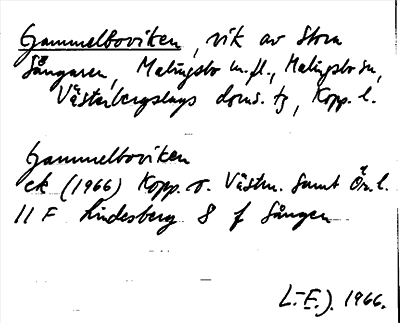 Gammelboviken, vik av Stora
Sångaren, Malingsbo m.fl., Malingsbo sn,
Västerbergslags doms. tg, Kopp. l.
Gammelboviken
ek (1966) Kopp. o. Västm. samt Ör. l.
11 F Lindesberg 8 f Sången
L.-E.J. 1966.